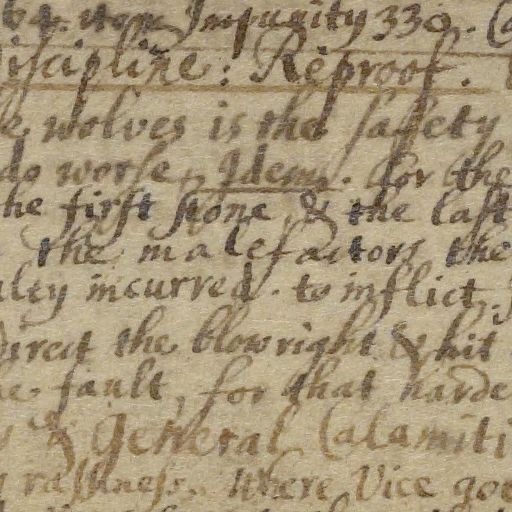 Impunity 330. (a
iscipline: Reproof.
e wolves is the safety
do worse. Idem. for the
he first stone, & the last
the malefactors the
lty incurred. to inflict.
direct the blow right & hit
he fault, for that harde
& general Calamiti
rashness. Where Vice goe